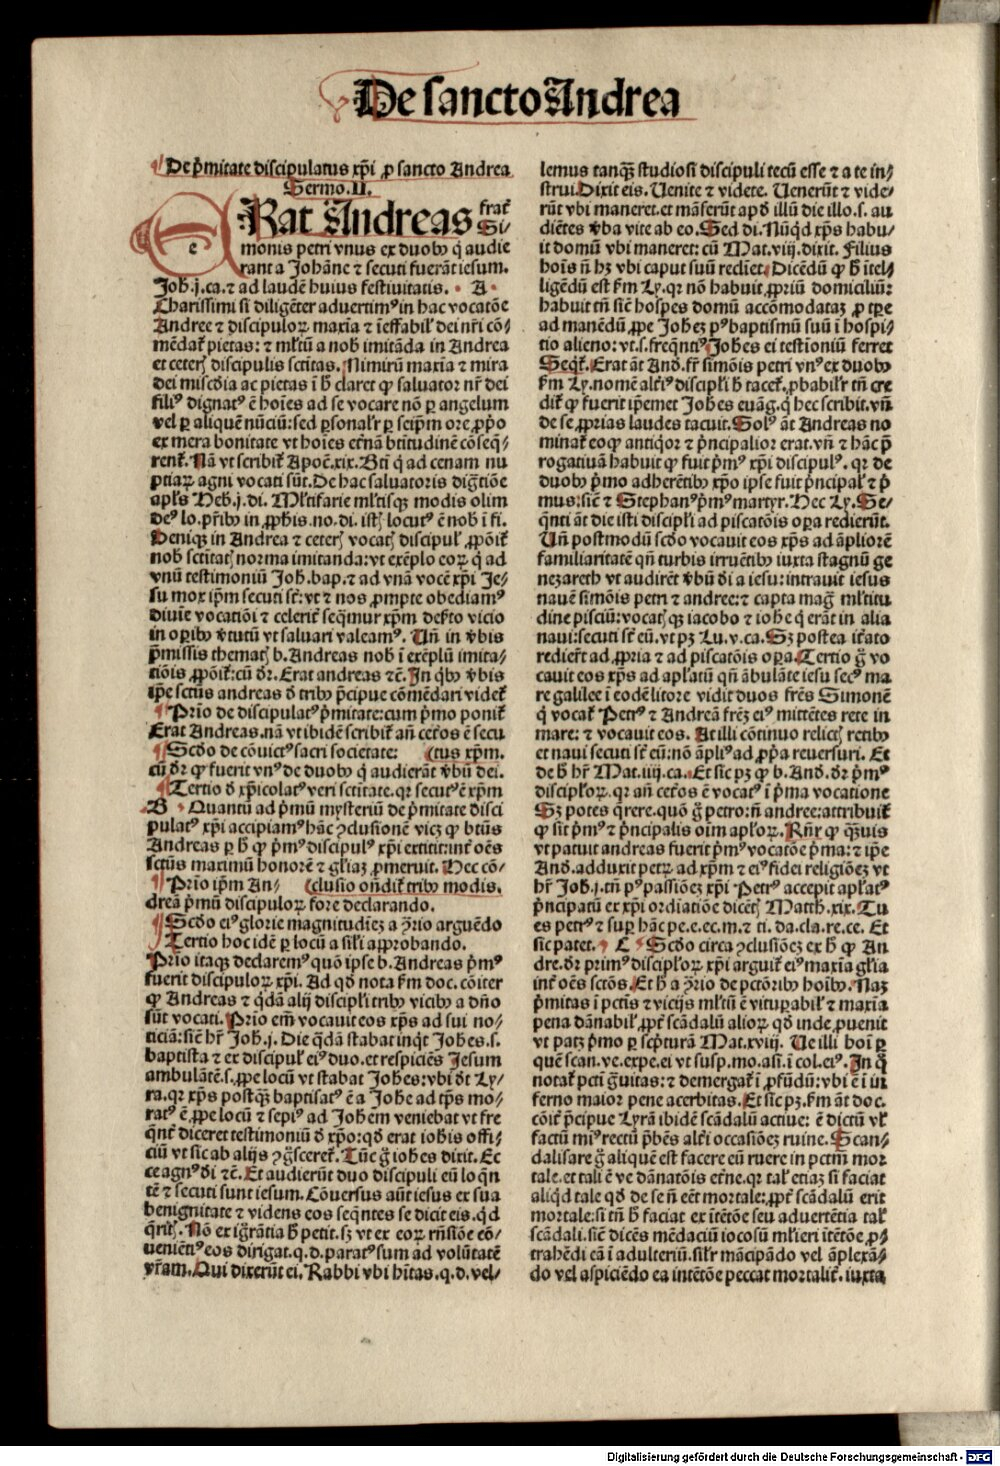 De sancto Andrea
De p̄mitate discipulatus xp̄i ꝓ sancto Andrea
Sermo.II.
ERat s. Andreas frat̄
Si-
monis petri vnus ex duobꝰ q̄ audie
rant a Johāne ⁊ secuti fuerāt iesum.
Joh.j.ca.⁊ ad laudē huius festiuitatis. A
Charissimi si diligēter aduertimꝰ in hac vocatōe
Andree ⁊ discipuloꝝ maxīa ⁊ ineffabil̓ dei nr̄i cō-
mēdat̄ pietas: ⁊ ml̓tū a nob̓ imitāda in Andrea
et ceteris discipulis sctītas. Nimirū maxīa ⁊ mira
dei miscd̓ia ac pietas ī h̓ claret ꝙ saluator nr̄ dei
filiꝰ dignatꝰ ē hoīes ad se vocare nō ꝑ angelum
vel ꝑ aliquē nūciū: sed ꝑsonal̓r ꝑ seip̄m ore ꝓpō
ex mera bonitate vt hoīes et̄nā btītudinē cōseq̄-
rent̄. Nā vt scribit̄ Apoc̄.xix. Btī q̄ ad cenam nu
ptiaꝝ agni vocati sūt. De hac saluatoris dig̓tiōe
apl̓s Heb.j.di. Ml̓tifarie ml̓tisqꝫ modis olim
deꝰ lo.pr̄ibꝰ in ꝓph̓is.no.di. istis locutꝰ ē nob̓ ī fi.
Deniqꝫ in Andrea ⁊ ceteris vocatis discipul̓ ꝓpōit̄
nob̓ sctītatis norma imitanda: vt exēplo eoꝝ q̄ ad
vnū testimoniū Joh.bap.⁊ ad vnā vocē xp̄i Je-
su mox ip̄m secuti st̄: vt ⁊ nos ꝓmpte obediamꝰ
diuīe vocatiōi ⁊ celerit̄ seq̄mur xp̄m def̓to vicio
in oꝑibꝰ v̓tutū vt saluari valeamꝰ. Vn̄ in v̓bis
p̄missis thematis b. Andreas nob̓ ī exēplū imita-
tiōis ꝓpōit̄: cū dr̄. Erat andreas ⁊c̄. In q̄bꝰ v̓bis
ip̄e sctūs andreas d̓ tribꝰ p̄cipue cōmēdari videt̄
Prīo de discipulatꝰ p̄mitate: cum p̄mo ponit̄
Erat Andreas. nā vt ibidē scribit̄ an̄ cet̄os ē secu
Scd̓o de cōuictꝰ sacri societate: (tus xp̄m.
cū dr̄ ꝙ fuerit vnꝰ de duobꝰ q̄ audierāt v̓bū dei.
Tertio d̓ xp̄icolatꝰ veri sctītate. qr̄ secutꝰ ē xp̄m
B Quantū ad p̄mū mysteriū de p̄mitate disci
pulatꝰ xp̄i accipiamꝰ hāc ꝯclusionē vicꝫ ꝙ btūs
Andreas ꝑ h̓ ꝙ p̄mꝰ discipulꝰ xp̄i extitit: int̄ oēs
sctōs maximū honorē ⁊ gl̓iaꝫ ꝓmeruit. Hec cō-
Prīo ip̄m An- (clusio on̄dit̄ tribꝰ modis.
dreā p̄mū discipuloꝝ fore declarando.
Scd̓o eiꝰ glorie magnitudīeꝫ a ꝯ̓rio arguēdo
Tertio hoc idē ꝑ locū a sil̓i approbando.
Prīo itaqꝫ declaremꝰ quō ip̄se b. Andreas p̄mꝰ
fuerit discipuloꝝ xp̄i. Ad qd̓ nota s̄m doc. cōiter
ꝙ Andreas ⁊ q̄dā alij discipl̓i tribꝰ vicibꝰ a dn̄o
sūt vocati. Prīo em̄ vocauit eos xp̄s ad sui no-
ticiā: sic̄ hr̄ Joh.j. Die q̄dā stabat inq̄t Johes.s.
baptista ⁊ ex discipul̓ eiꝰ duo. et respiciēs Jesum
ambulātē.s. ꝓpe locū vt stabat Johes: vbi d̓t Ly-
ra. qr̄ xp̄s postqꝫ̄ baptisatꝰ ē a Johe ad tp̄s mo-
ratꝰ ē ꝓpe locū ⁊ sepiꝰ ad Johem veniebat vt fre
q̄nt̄ diceret testimoniū d̓ xp̄o: qd̓ erat iohis offi-
ciū vt sic ab alijs ꝯg̓sceret̄. Tūc g̓ iohes dixit. Ec
ce agnꝰ d̓i ⁊c̄. Et audierūt duo discipuli eū loq̄n
tē ⁊ secuti sunt iesum. Cōuersus aūt iesus ex sua
benignitate ⁊ videns eos seq̄ntes se dicit eis. q̄d
q̄ritis. Nō ex igr̄antia h̓ petit. sꝫ vt ex eoꝝ rn̄siōe cō-
ueniētiꝰ eos dirigat. q.d. paratꝰ sum ad volūtatē
vr̄am. Qui dixerūt ei. Rabbi vbi hītas. q.d. vel-
lemus tanqꝫ̄ studiosi discipuli tecū esse ⁊ a te in-
strui. Dixit eis. Uenite ⁊ videte. Uenerūt ⁊ vide-
rūt vbi maneret. et māserūt apd̓ illū die illo.s. au
diētes v̓ba vite ab eo. Sed di. Nūqd̓ xp̄s habu-
it domū vbi maneret: cū Mat.viij. dixit. Filius
hoīs nō hꝫ vbi caput suū reclīet. Dicēdū ꝙ h̓ ītel-
ligēdū est s̄m Ly. qr̄ non habuit ꝓpriū domiciliū:
habuit tn̄ sic̄ hospes domū accōmodataꝫ ꝓ tp̄e
ad manēdū ꝓpe Joheꝫ pꝰ baptismū suū ī hospi-
tio alieno: vt.s. freq̄ntiꝰ Johes ei testīoniū ferret
Seqt̄. Erat āt And. fr̄ simōis petri vnꝰ ex duobꝰ
s̄m Ly. nomē alt̄iꝰ discipl̓i h̓ tacet̄. ꝓbabil̓r tn̄ cre
dit̄ ꝙ fuerit ip̄emet Johes euāg. q̄ hec scribit. vn̄
de se ꝓprias laudes tacuit. Solꝰ āt Andreas no
minat̄ eo ꝙ antiq̓or ⁊ p̄ncipalior erat. vn̄ ⁊ hāc p̄
rogatiuā habuit ꝙ fuit p̄mꝰ xp̄i discipulꝰ. qr̄ de
duobꝰ p̄mo adherētibꝰ xp̄o ipse fuit p̄ncipal̓ ⁊ p̄
mus: sic̄ ⁊ Stephanꝰ p̄mꝰ martyr. Hec Ly. Se-
q̄nti āt die isti discipl̓i ad piscatōis oꝑa redierūt.
Vn̄ postmodū scd̓o vocauit eos xp̄s ad āpliorē
familiaritatē qn̄ turbis irruētibꝰ iuxta stagnū ge
nezareth vt audirēt v̓bū d̓i a iesu: intrauit iesus
nauē simōis petri ⁊ andree: ⁊ capta mag̓ ml̓titu
dine pisciū: vocatisqꝫ iacobo ⁊ iohe q̄ erāt in alia
naui: secuti st̄ eū. vt pꝫ Lu.v.ca. Sꝫ postea it̄ato
redier̄t ad ꝓpria ⁊ ad piscatōis oꝑa. Tertio g̓ vo
cauit eos xp̄s ad apl̓atū qn̄ ābulāte iesu secꝰ ma
re galilee ī eodē litore vidit duos fr̄es Simonē
q̄ vocat̄ Petrꝰ ⁊ Andreā fr̄eꝫ eiꝰ mittētes rete in
mare: ⁊ vocauit eos. At illi cōtinuo relictis retibꝰ
et naui secuti st̄ eū: nō āpliꝰ ad ꝓp̄a reuersuri. Et
de h̓ hr̄ Mat.iiij.ca. Et sic pꝫ ꝙ b. And. dr̄ p̄mꝰ
discipl̓oꝝ. qr̄ an̄ cet̄os ē vocatꝰ ī p̄ma vocatione
Sꝫ potes q̄rere. quō g̓ petro: nō andree: attribuit̄
ꝙ sit p̄mꝰ ⁊ p̄ncipalis oīm apl̓oꝝ. Rn̄r ꝙ qꝫ̄uis
vt patuit andreas fuerit p̄mꝰ vocatōe p̄ma: ⁊ ip̄e
And. adduxit petꝝ ad xp̄m ⁊ eiꝰ fidei religiōeꝫ vt
hr̄ Joh.j. tn̄ pꝰ passiōeꝫ xp̄i Petrꝰ accepit apl̓atꝰ
p̄ncipatū ex xp̄i ordiatiōe dicētis Matth.xix. Tu
es petrꝰ ⁊ suꝑ hāc pe.e.ec.m.⁊ ti.da.cla.re.ce. Et
sic patet. C Scd̓o circa ꝯclusiōeꝫ ex h̓ ꝙ An
dre. dr̄ primꝰ discipl̓oꝝ xp̄i arguit̄ eiꝰ maxīa gl̓ia
int̄ oēs sctōs. Et h̓ a ꝯ̓rio de pctōribꝰ hoībꝰ. Naꝫ
p̄mitas ī pctīs ⁊ vicijs ml̓tū ē vituꝑabil̓ ⁊ maxīa
pena dānabil̓ ꝓpt̄ scādalū alioꝝ qd̓ inde ꝓuenit
vt patꝫ p̄mo ꝑ scpturā Mat.xviij. Ue illi hoī ꝑ
quē scan.ve.expe.ei vt susp.mo.asi.ī col.eiꝰ. In q̓
notat̄ pctī g̓uitas: ⁊ demergat̄ ī ꝓfūdū: vbi ē ī in
ferno maior pene acerbitas. Et sic pꝫ. s̄m āt doc.
cōit̄ p̄cipue Lyrā ibidē scādalū actiue: ē dictū vl̓
factū minꝰ rectū p̄bēs alt̄i occasiōeꝫ ruine. Scan-
dalisare g̓ aliquē est facere eū ruere in pctm̄ mor
tale. et tali ē ve dānatōis et̄ne. qr̄ tal̓ etiaꝫ si faciat
aliqd̓ tale qd̓ de se nō eēt mortale: ꝓpt̄ scādalū erit
mortale: si tn̄ h̓ faciat ex ītētōe seu aduertētia tal̓
scādali. sic̄ dicēs mēdaciū iocosū ml̓ieri ītētōe ꝓ-
trahēdi eā ī adulteriū. sil̓r mācipādo vel āplexā-
do vel aspiciēdo ea intētōe peccat mortalit̄. iuxta
Digitalisierung gefördert durch die Deutsche Forschungsgemeinschaft - DFG